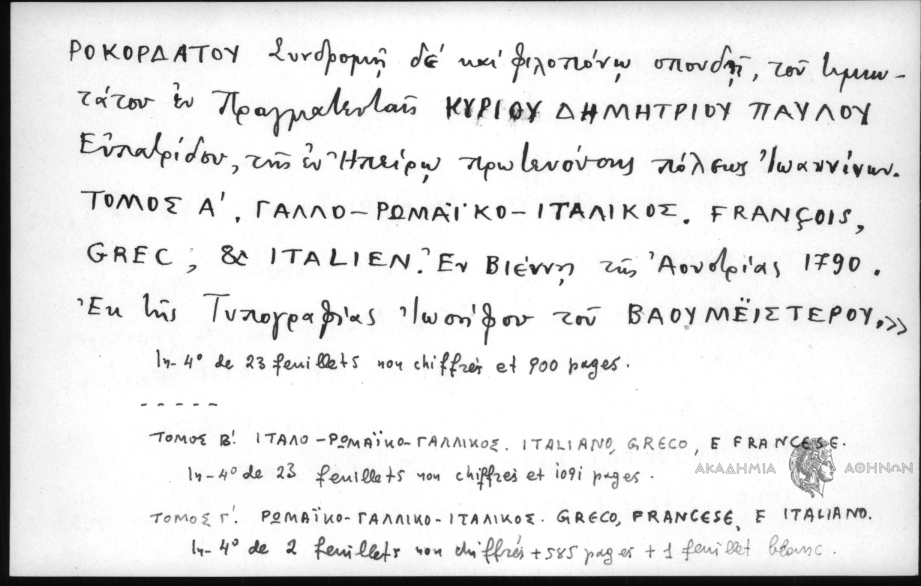 ΡΟΚΟΡΔΑΤΟΥ Συνδρομῇ δέ καί φιλοπόνῳ σπουδῇ, τοῦ τιμιω-
τάτου ἐν Πραγματευταῖς ΚΥΡΙΟΥ ΔΗΜΗΤΡΙΟΥ ΠΑΥΛΟΥ
Εὐπατρίδου, τῆς ἐν Ἠπείρῳ πρωτευούσης πόλεως Ἰωαννίνων.
ΤΟΜΟΣ Α΄. ΓΑΛΛΟ-ΡΩΜΑΪΚΟ-ΙΤΑΛΙΚΟΣ. FRANÇOIS,
GREC, & ITALIEN. Ἐν Βιέννῃ τῆς Ἀουστρίας 1790.
Ἐκ τῆς Τυπογραφίας Ἰωσήφου τοῦ ΒΑΟΥΜΕΪΣΤΕΡΟΥ.»
In-4° de 23 feuillets non chiffrés et 900 pages.
-----
ΤΟΜΟΣ Β΄. ΙΤΑΛΟ-ΡΩΜΑΪΚΟ-ΓΑΛΛΙΚΟΣ. ITALIANO, GRECO, E FRANCESE.
ΑΚΑΔΗΜΙΑ ΑΘΗΝΩΝ
In-4° de 23 feuillets non chiffrés et 1091 pages.
ΤΟΜΟΣ Γ΄. ΡΩΜΑΪΚΟ-ΓΑΛΛΙΚΟ-ΙΤΑΛΙΚΟΣ. GRECO, FRANCESE, E ITALIANO.
In-4° de 2 feuillets non chiffrés + 585 pages + 1 feuillet blanc.